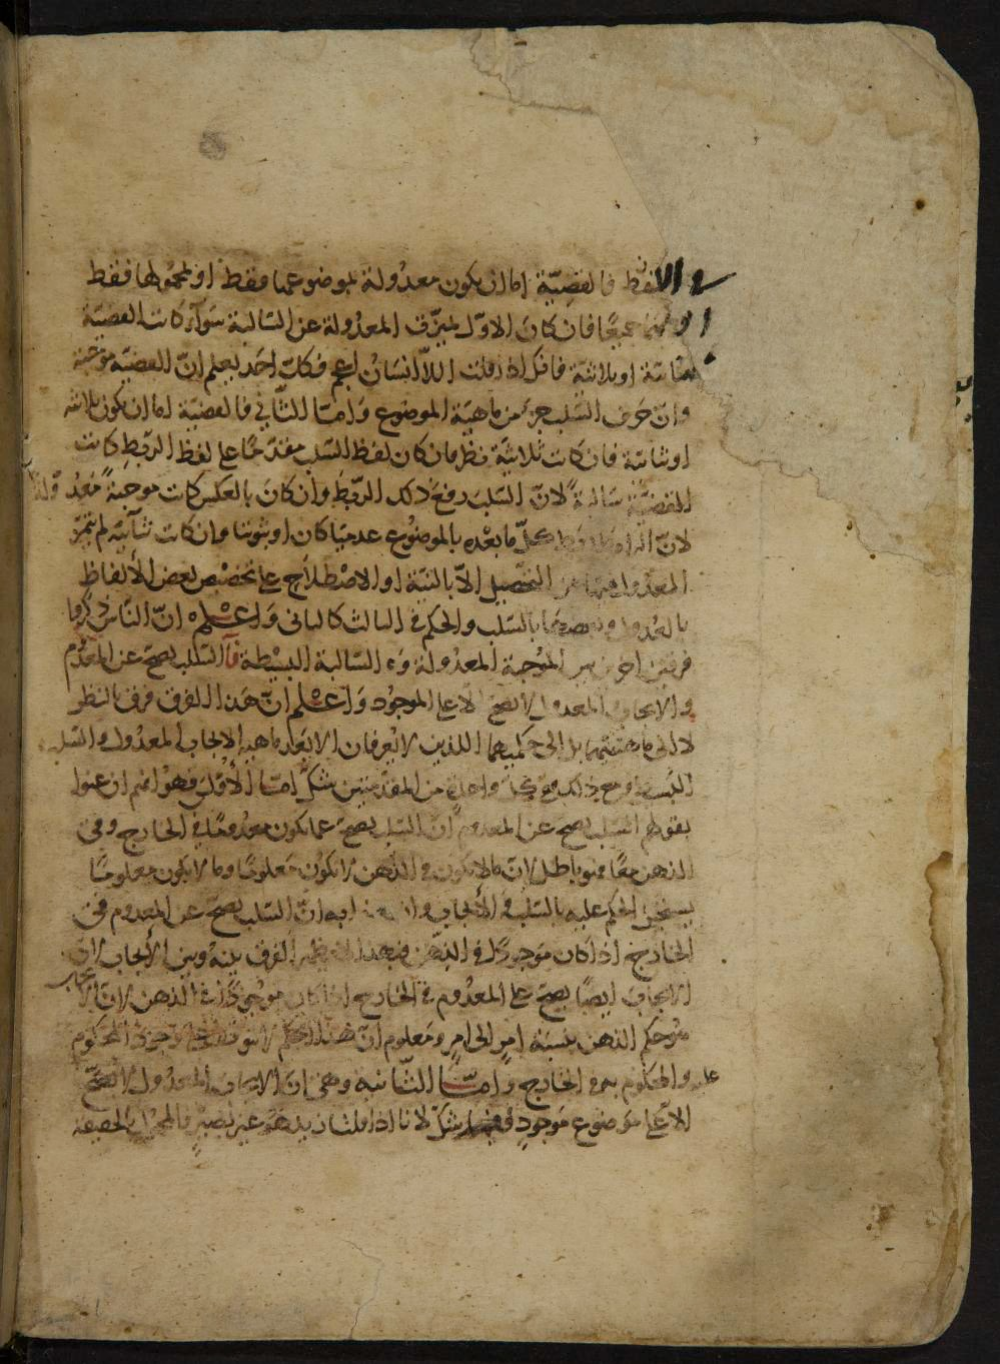 في اللفظ فالقضيّة اما ان يكون معدولة بموضوعها فقط او بمحمولها فقط
او بهما جميعًا فان كان الاوّل لميزت المعدولة عن السالبة سَوآء كانت القضيّة
ثنائية او ثلاثية فانك اذا قلت اللا انسان اعجم فكل احد يعلم انّ القضيّة موجبة
وانّ حرف السّلب جزء من ماهيّة الموضوع وَامّا الثّاني فالقضيّة اما ان يكون ثلاثية
او ثنائية فان كانت ثلاثيّة نظر فان كان لفظ السّلب مقدّمًا على لفظ الربّط كانت
القضيّة سالبةً لانّ السّلب رفع ذلك الربّط وان كان بالعكس كانت موجبةً معدولة
لانّ الرابطة كلّ ما بعده بالموضوع عدميًا كان او ثبوتيا وان كانت ثنآئية لم يتميّز
المعدول عن التحصيل الّا بالنيّة او الاصْطلاح على تخصيص بعض الألفاظ
بالعُدول وبعضها بالسّلب والحكم في الثالث كالثاني وَاعْلم انّ النّاس ذكروا
فرقين اخرين بين الموجبة المعدولة وَ السّالبة البسيْطة فآ السّلب يصحّ عن المعدُوم
والايجاب المعدول لا يصحّ الّا على الموجُود وَاعْلم انّ هَذا الفرق فرق بالنّظر
لا الى ماهيّتهما بل الى حكميهما اللذين لا يُعرفان الا بَعد ماهيّة الايجاب المعدُول والسّلب
البسيط ومع ذلك ففي كلّ واحدة من المقدّمتين شكّ امّا الأوّل فهو انّهم ان عنوا
بقولهم السّلب يصحّ عن المعدوم انّ السّلب يصحّ عما يكون معدُومًا في الخارج وفي
الذهن معًا فهو باطل لانّ ما لا يكون في الذّهن لا يكوُن مَعلومًا وما لا يكون معلومًا
يستحيل الحكم عليه بالسّلب والأيجاب وان به انّ السّلب يصحّ عن المعدوم في
الخارج اذا كان موجودًا في الذهن فبهذا لا يظهر الفرق بينه وبين الأيجاب لانّ
الايجاب ايضًا يصحّ على المعدُوم في الخارج اذا كان موجودًا في الذهن لانّ الايجاب
هُو حكم الذهن بنسبة امرٍ الى امرٍ ومَعلوم انّ هذا الحكم لا يتوقف على وجود المحكوم
عليه والمحكوم به في الخارج وَامّا الثّانية وهي انّ الايجاب المعدول لا يصحّ
الّا على مَوضوع مَوجودٍ ففيه شكّ لانا اذا قلنا زيد هو غير بصيرٍ فالمحمول بالحقيقة